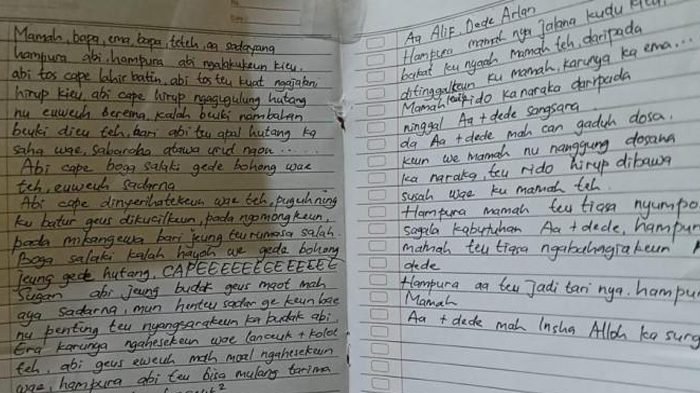 No.
Mamah, bapa, ema, bapa, teteh, aa sadayana
hampura abi, hampura abi ngalakukeun kieu,
abi tos cape lahir batin, abi tos teu kuat ngajalani
hirup kieu, abi cape hirup ngagugulung hutang
nu euweuh berema, kalah beuki nambahan
beuki dieu teh, bari abi tu apal hutang ka
saha wae, sabaraha atawa urid naon .....
Abi cape boga salaki gede bohong wae
teh, euweuh sadarna
Abi cape dinyerihatekeun wae teh, puguh ning
ku batur geus dikucilkeun, pada ngomongkeun,
pada mikangewa bari jeung teu rumasa salah.
Boga salaki kalah hayoh we gede bohong
jeung gede hutang, CAPEEEEEEEEEEEEE
Sugan abi jeung budak geus maot mah
aya sadarna, mun henteu sadar ge keun bae
nu penting teu nyangsarakeun ka budak abi,
Era karunya ngahesekeun wae lanceuk + kolot
teh, abi geus eweuh mah moal ngahesekeun
wae, hampura abi teu bisa mulang tarima
Aa Alif, Dede Arlan
Hampura mamah nya jalana kudu kieu,
bakat ku nyaah mamah teh, daripada
ditinggalkeun ku mamah, karunya ka ema...
Mamah rido ka naraka daripada
ninggal Aa + dede sangsara
da Aa + dede mah can gaduh dosa,
keun we mamah nu nanggung dosana
ka naraka, teu rido hirup dibawa
susah wae ku mamah teh.
Hampura mamah teu tiasa nyumpo
sagala kabutuhan Aa + dede, hampura
mamah teu tiasa ngabahagiakeun
dede
Hampura aa teu jadi tari nya. hampu
Mamah
Aa + dede mah Insha Alloh ka surg